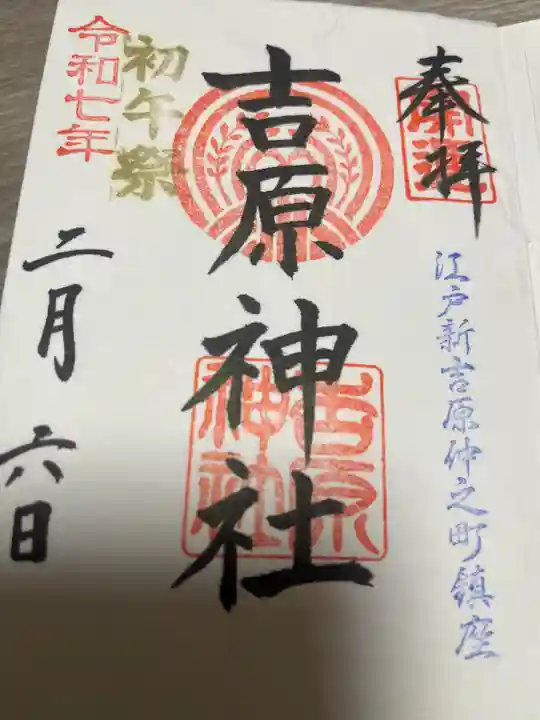 奉拝
開運
江戸新吉原仲之町鎮座
吉原神社
吉原神社
初午祭
令和七年
二月六日